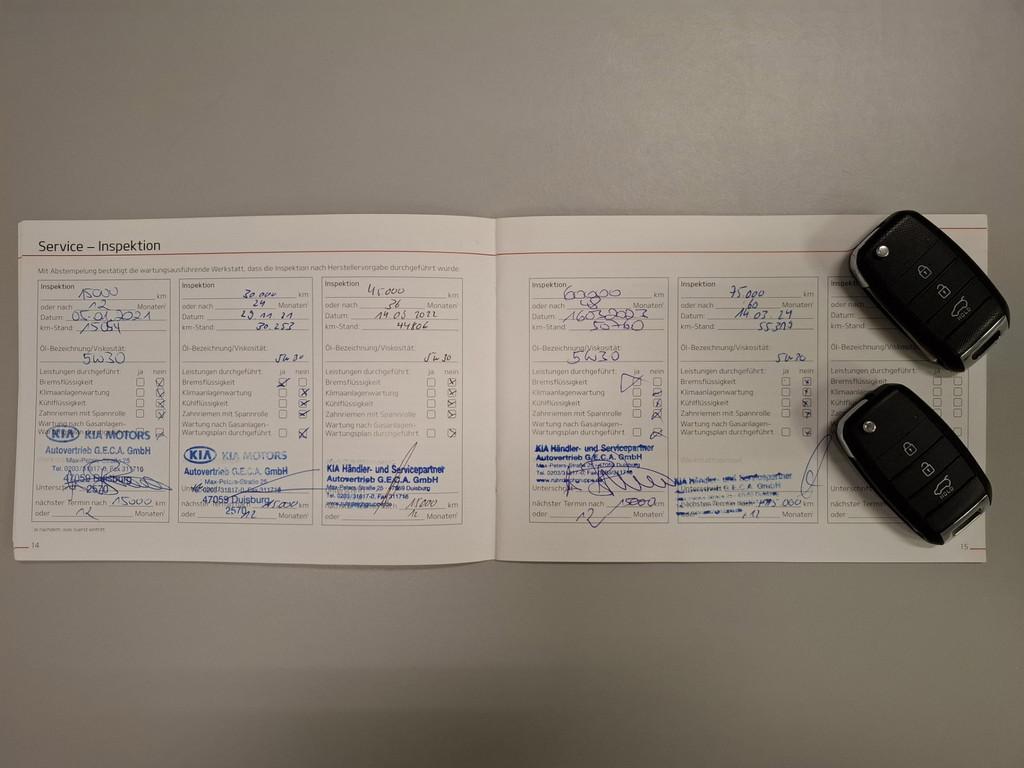 Service – Inspektion
Mit Abstempelung bestätigt die wartungsausführende Werkstatt, dass die Inspektion nach Herstellervorgabe durchgeführt wurde.
Inspektion
15000 km
oder nach 12 Monaten¹
Datum: 05.01.2021
km-Stand:
Öl-Bezeichnung/Viskosität:
5W30
Leistungen durchgeführt: ja nein
Bremsflüssigkeit
Klimaanlagenwartung
Kühlflüssigkeit
Zahnriemen mit Spannrolle
Wartung nach Gasanlagen-
KIA KIA MOTORS
Autovertrieb G.E.C.A. GmbH
Max-Peters-Straße 25
Tel. 0203/31817-0, Fax 311716
47059 Duisburg
2570
nächster Termin nach 15000 km
oder 12 Monaten¹
Inspektion
30.000 km
oder nach 24 Monaten¹
Datum: 29 11 21
km-Stand: 30.253
Öl-Bezeichnung/Viskosität:
5W30
Leistungen durchgeführt: ja nein
Bremsflüssigkeit
Klimaanlagenwartung
Kühlflüssigkeit
Zahnriemen mit Spannrolle
Wartung nach Gasanlagen-
Wartungsplan durchgeführt
KIA KIA MOTORS
Autovertrieb G.E.C.A. GmbH
Max-Peters-Straße 25
47059 Duisburg
2570
nächster Termin nach 15000 km
oder 12 Monaten¹
Inspektion
45000 km
oder nach 36 Monaten¹
Datum: 14.09.2022
km-Stand: 44806
Öl-Bezeichnung/Viskosität:
5W30
Leistungen durchgeführt: ja nein
Bremsflüssigkeit
Klimaanlagenwartung
Kühlflüssigkeit
Zahnriemen mit Spannrolle
Wartung nach Gasanlagen-
Wartungsplan durchgeführt
KIA Händler- und Servicepartner
Autovertrieb G.E.C.A. GmbH
Max-Peters-Straße 25 - 47059 Duisburg
Tel. 0203/31817-0, Fax 311716
15000 km
oder 12 Monaten¹
14
Inspektion
60000 km
oder nach 48 Monaten¹
Datum: 16032023
km-Stand: 50760
Öl-Bezeichnung/Viskosität:
5W30
Leistungen durchgeführt: ja nein
Bremsflüssigkeit
Klimaanlagenwartung
Kühlflüssigkeit
Zahnriemen mit Spannrolle
Wartung nach Gasanlagen-
Wartungsplan durchgeführt
KIA Händler- und Servicepartner
Autovertrieb G.E.C.A. GmbH
Max-Peters-Straße 25 - 47059 Duisburg
nächster Termin nach 15000 km
oder 12 Monaten¹
Inspektion
75000 km
oder nach 60 Monaten¹
Datum: 14 03. 24
km-Stand:
Öl-Bezeichnung/Viskosität:
Leistungen durchgeführt: ja nein
Bremsflüssigkeit
Klimaanlagenwartung
Kühlflüssigkeit
Zahnriemen mit Spannrolle
Wartung nach Gasanlagen-
Wartungsplan durchgeführt
KIA Händler- und Servicepartner
nächster Termin nach 15 000 km
oder 12 Monaten¹
Inspektion
oder nach
Datum:
km-Stand:
Öl-Bezeichnung/Viskosität:
HOLD
HOLD
15